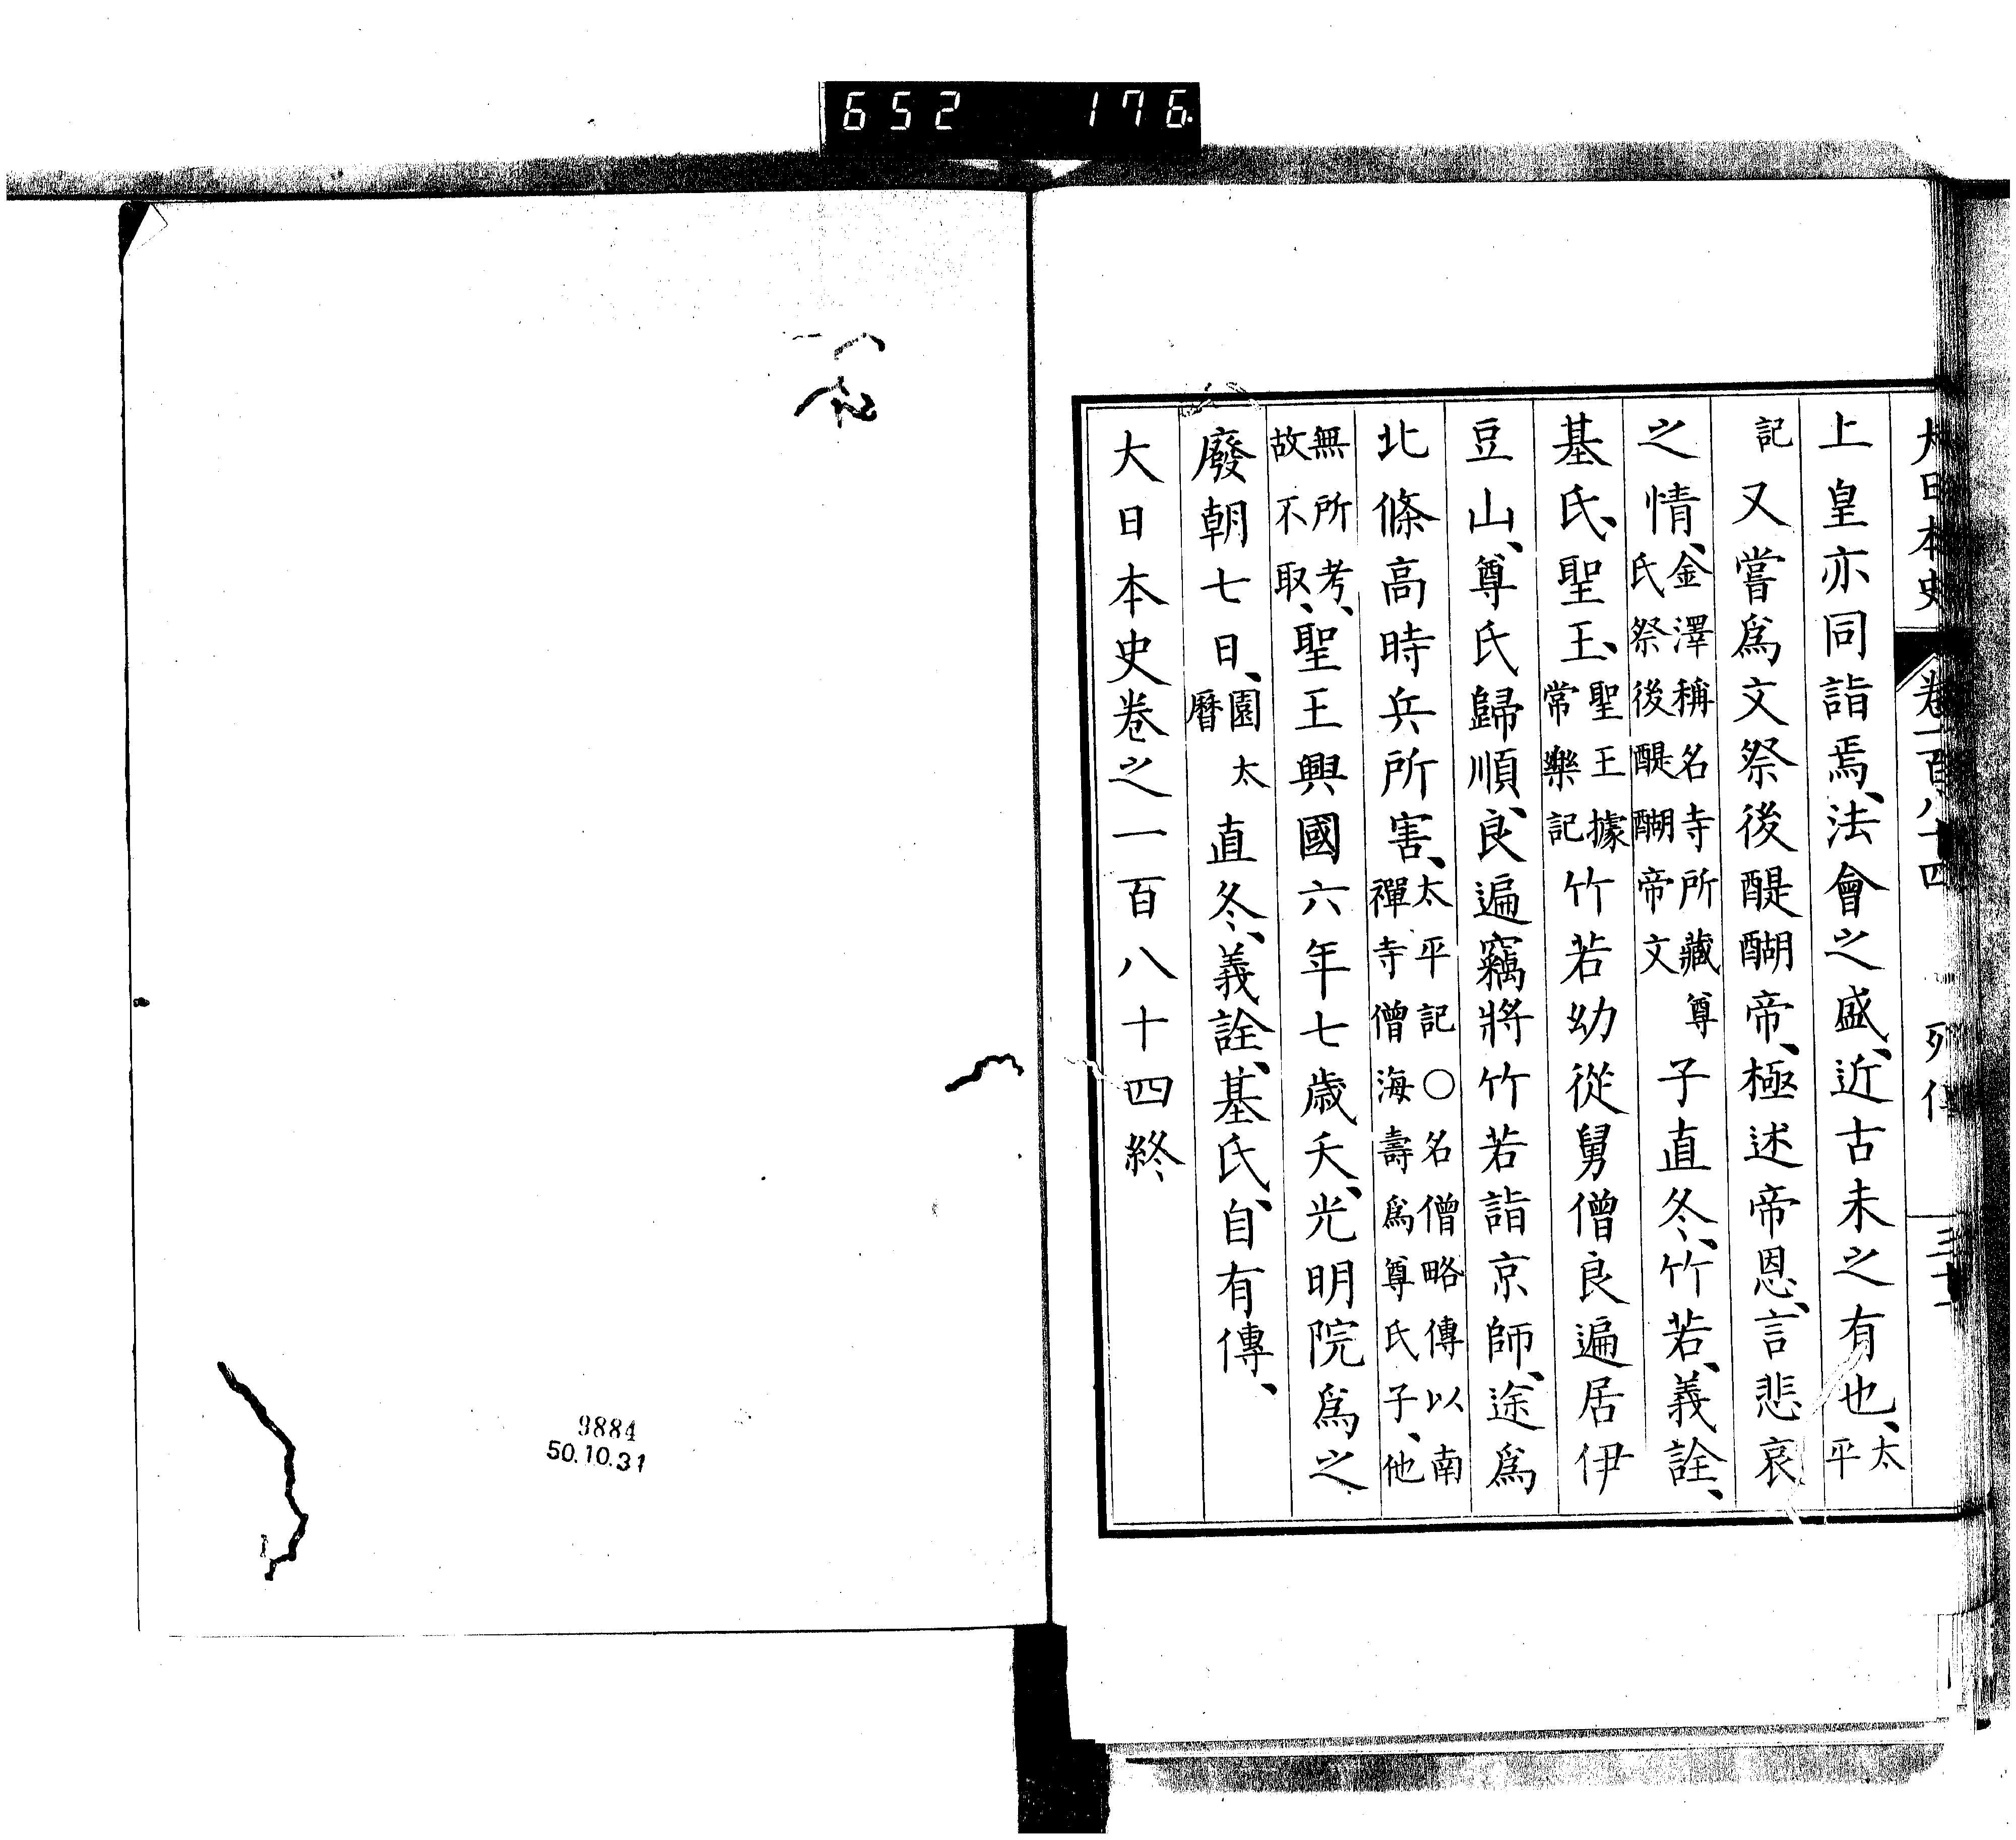 652 176
大日本史 卷一百八十四 列傳
上皇亦同詣焉、法會之盛、近古未之有也、太平
記又嘗爲文祭後醍醐帝、極述帝恩、言悲哀
之情、金澤稱名寺所藏尊氏祭後醍醐帝文子直冬、竹若、義詮、
基氏、聖王、聖王據常樂記竹若幼從舅僧良遍居伊
豆山、尊氏歸順、良遍竊將竹若詣京師、途爲
北條高時兵所害、太平記○名僧略傳以南禪寺僧海壽爲尊氏子、他
無所考、故不取、聖王興國六年七歲夭、光明院爲之
廢朝七日、園太曆直冬、義詮、基氏、自有傳、
大日本史卷之一百八十四終
9884
50.10.31